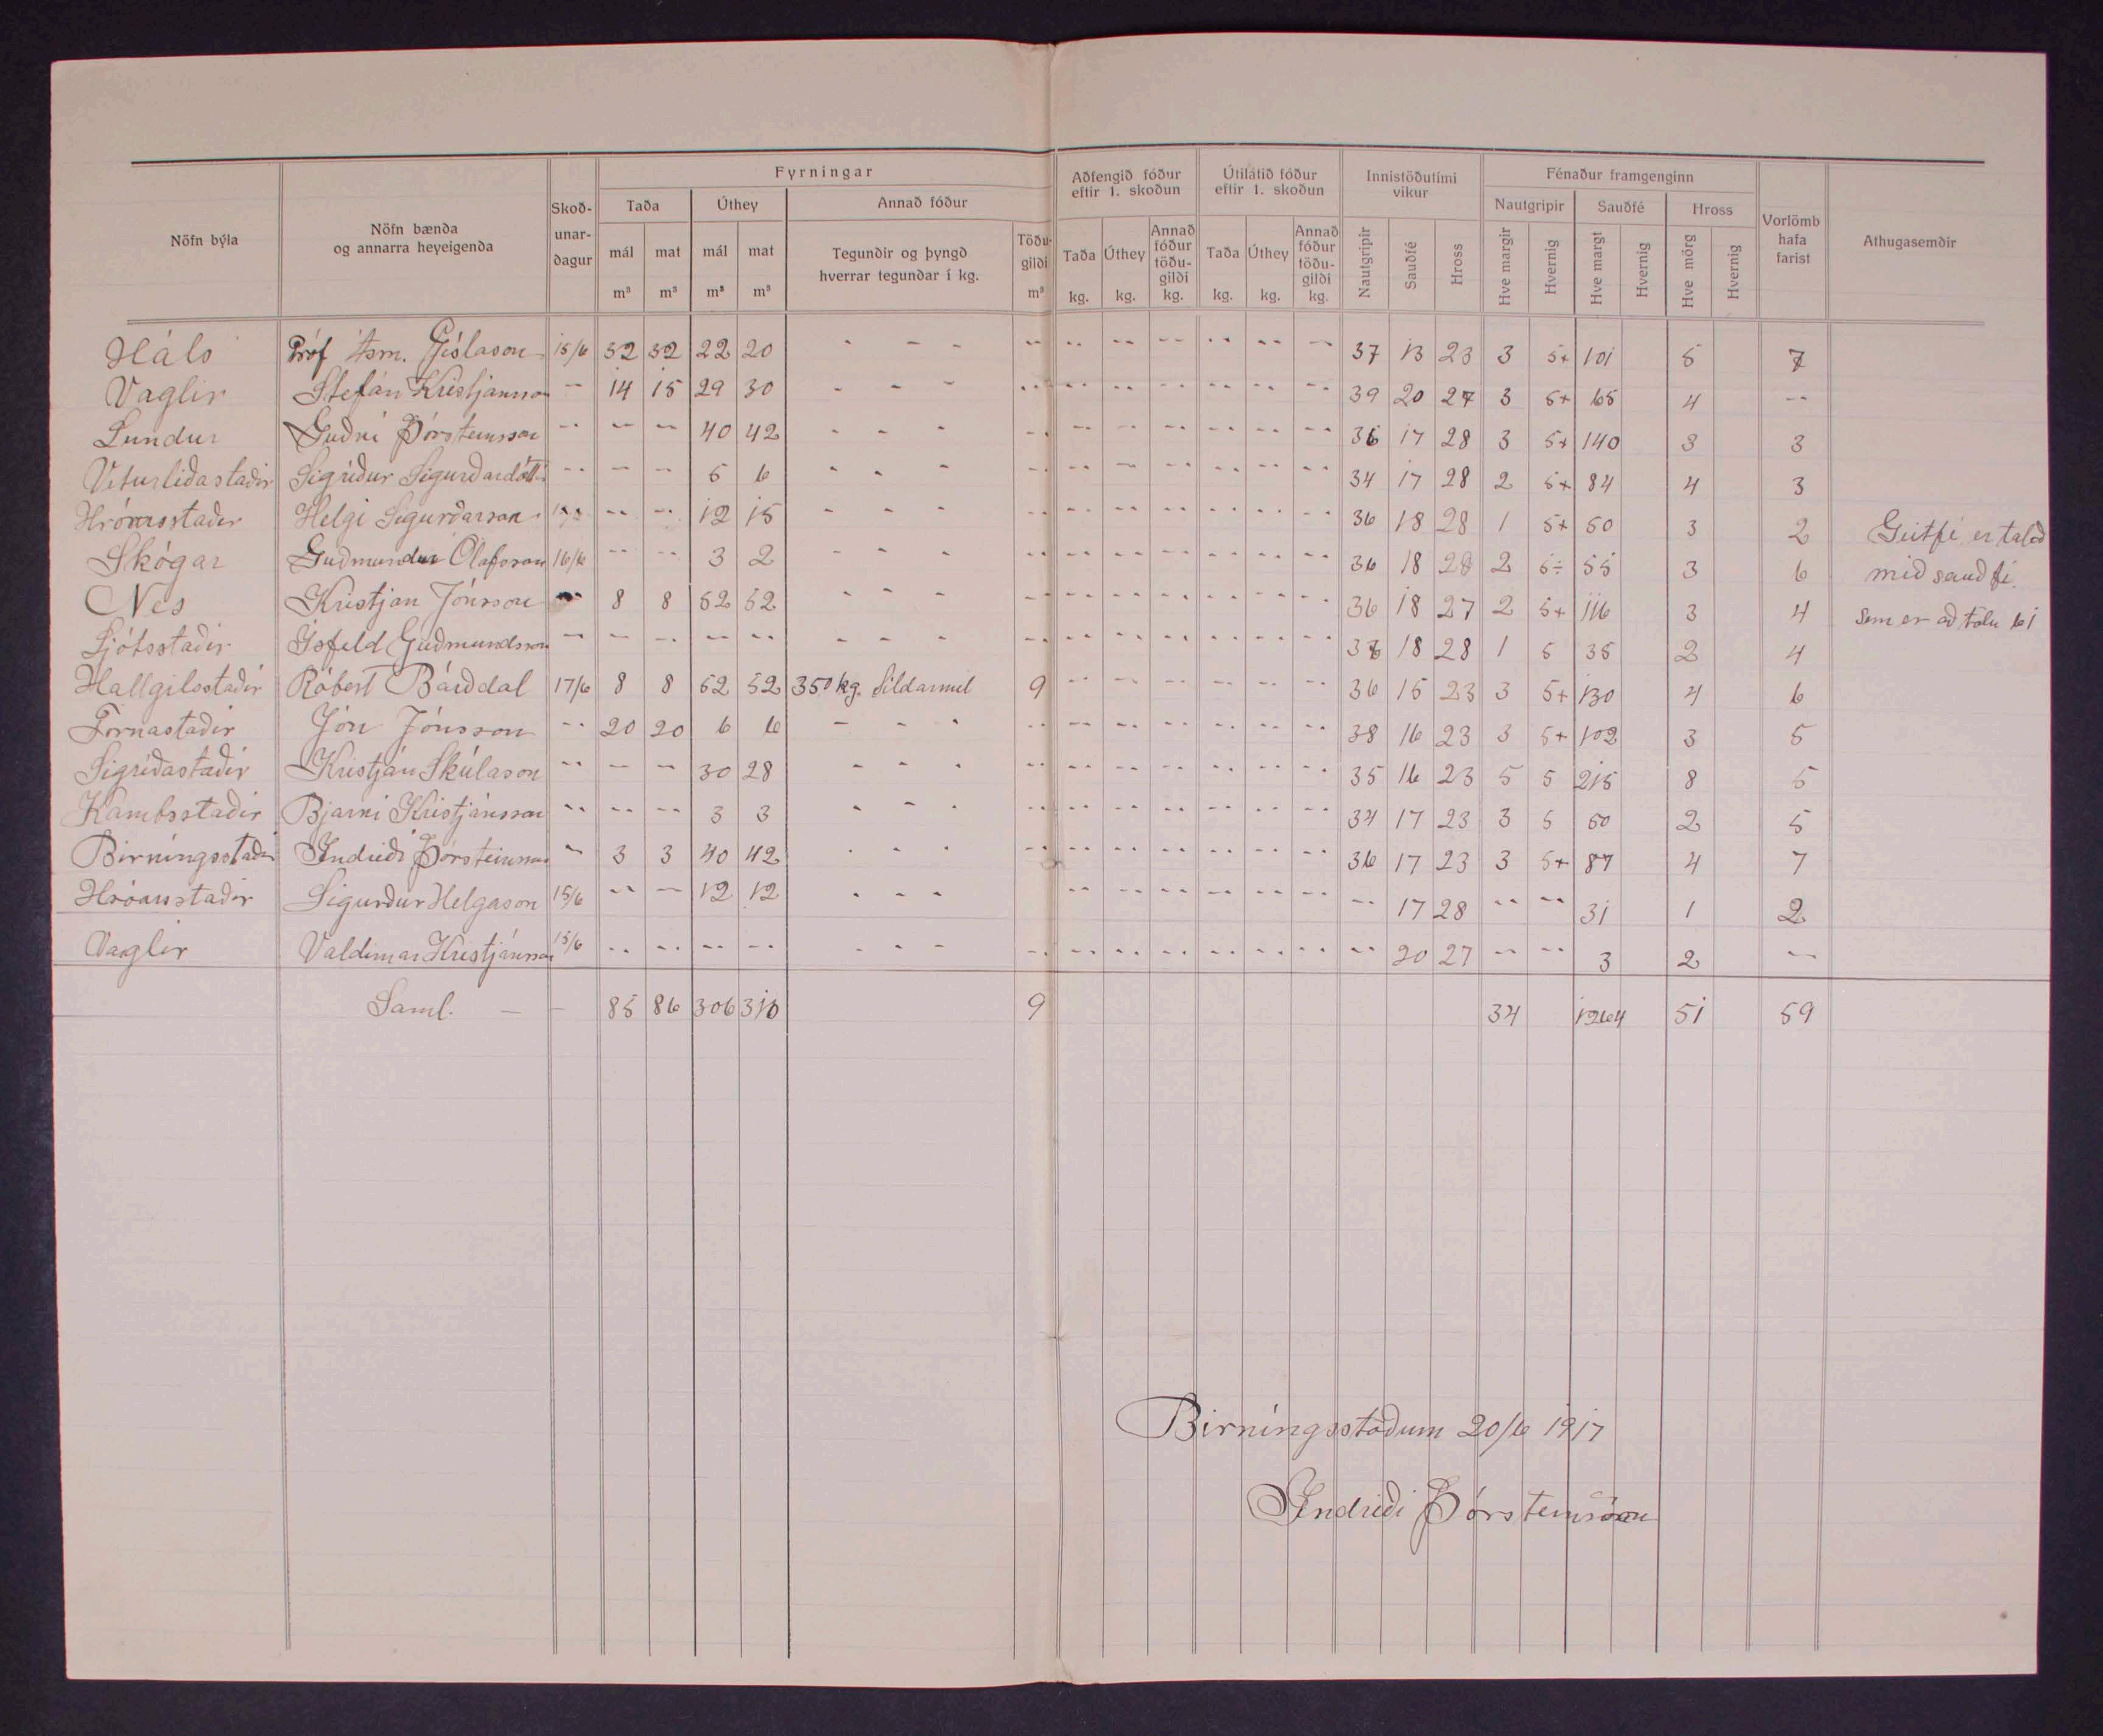 Fyrningar
Aðfengið fóður eftir 1. skoðun
Útilátið fóður eftir 1. skoðun
Innistöðutími vikur
Fénaður framgenginn
Nöfn býla
Nöfn bænda og annarra heyeigenda
Skoð-unar-dagur
Taða Úthey Annað fóður
Nautgripir Sauðfé Hross
Vorlömb hafa farist
Athugasemdir
mál m³ mat m³ mál m³ mat m³
Tegundir og þyngd hverrar tegundar í kg.
Töðu-gildi m³
Taða kg. Úthey kg. Annað fóður töðu-gildi kg.
Taða kg. Úthey kg. Annað fóður töðu-gildi kg.
Nautgripir Sauðfé Hross
Hve margir Hvernig Hve margt Hvernig Hve mörg Hvernig
Háls Próf Ásm. Gíslason 15/6 32 32 22 20 - - - -- -- -- -- -- -- -- 37 13 23 3 5+ 101 5 7
Vaglir Stefán Kristjánsson -- 14 15 29 30 - - - -- -- -- -- -- -- -- 39 20 27 3 5+ 65 4 --
Lundur Guðni Þórsteinsson -- -- -- 40 42 - - - -- -- -- -- -- -- -- 36 17 28 3 5+ 140 3 3
Veturliðastaðir Sigríður Sigurðardóttir -- -- -- 5 6 - - - -- -- -- -- -- -- -- 34 17 28 2 5+ 84 4 3
Hróarsstaðir Helgi Sigurðarson -- -- -- 12 15 - - - -- -- -- -- -- -- -- 36 18 28 1 5+ 50 3 2 Geitfé er talið
Skógar Guðmundur Ólafsson 16/6 -- -- 3 2 - - - -- -- -- -- -- -- -- 36 18 28 2 5÷ 55 3 6 með sauðfé.
Nes Kristján Jónsson -- 8 8 52 52 - - - -- -- -- -- -- -- -- 36 18 27 2 5+ 116 3 4 sem er að tölu 61
Ljótsstaðir Ísfeld Guðmundsson -- -- -- -- -- - - - -- -- -- -- -- -- -- 36 18 28 1 5 35 2 4
Hallgilsstaðir Róbert Bárðdal 17/6 8 8 52 52 350 kg. Síldarmél 9 -- -- -- -- -- -- 36 15 23 3 5+ 130 4 6
Fornastaðir Jón Jónsson -- 20 20 6 6 - - - -- -- -- -- -- -- -- 38 16 23 3 5+ 102 3 5
Sigríðastaðir Kristján Skúlason -- -- -- 30 28 - - - -- -- -- -- -- -- -- 35 16 23 5 5 215 8 5
Kambsstaðir Bjarni Kristjánsson -- -- -- 3 3 - - - -- -- -- -- -- -- -- 34 17 23 3 5 50 2 5
Birningsstaðir Indriði Þórsteinsson -- 3 3 40 42 - - - -- -- -- -- -- -- -- 36 17 23 3 5+ 87 4 7
Hróarsstaðir Sigurður Helgason 15/6 -- -- 12 12 - - - -- -- -- -- -- -- -- 17 28 -- -- 31 1 2
Vaglir Valdemar Kristjánsson 15/6 -- -- -- -- - - - -- -- -- -- -- -- -- -- 20 27 -- -- 3 2 --
Saml. - - 85 86 306 310 9 34 1264 51 59
Birningsstöðum 20/6 1917
Indriði Þórsteinsson